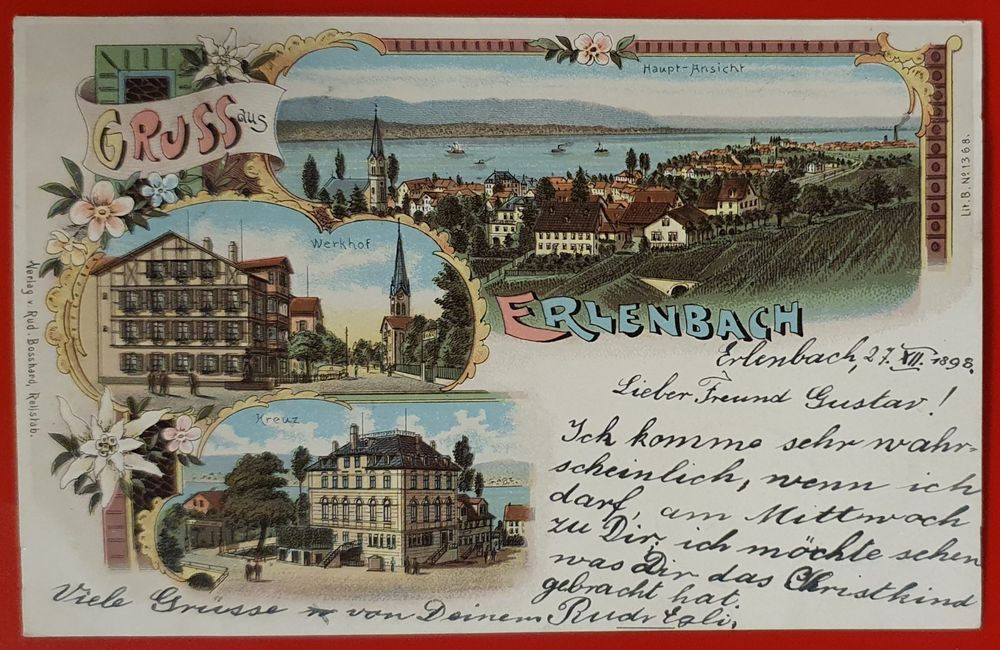 GRUSS aus
Haupt-Ansicht
Lit. B. No. 1368.
Werkhof
ERLENBACH
Verlag v. Rud. Bosshard, Rellstab.
Kreuz
Erlenbach, 27. XII. 1898.
Lieber Freund Gustav!
Ich komme sehr wahr-
scheinlich, wenn ich
darf, am Mittwoch
zu Dir, ich möchte sehen
was Dir das Christkind
gebracht hat.
Viele Grüsse von Deinem Rud. Egli.